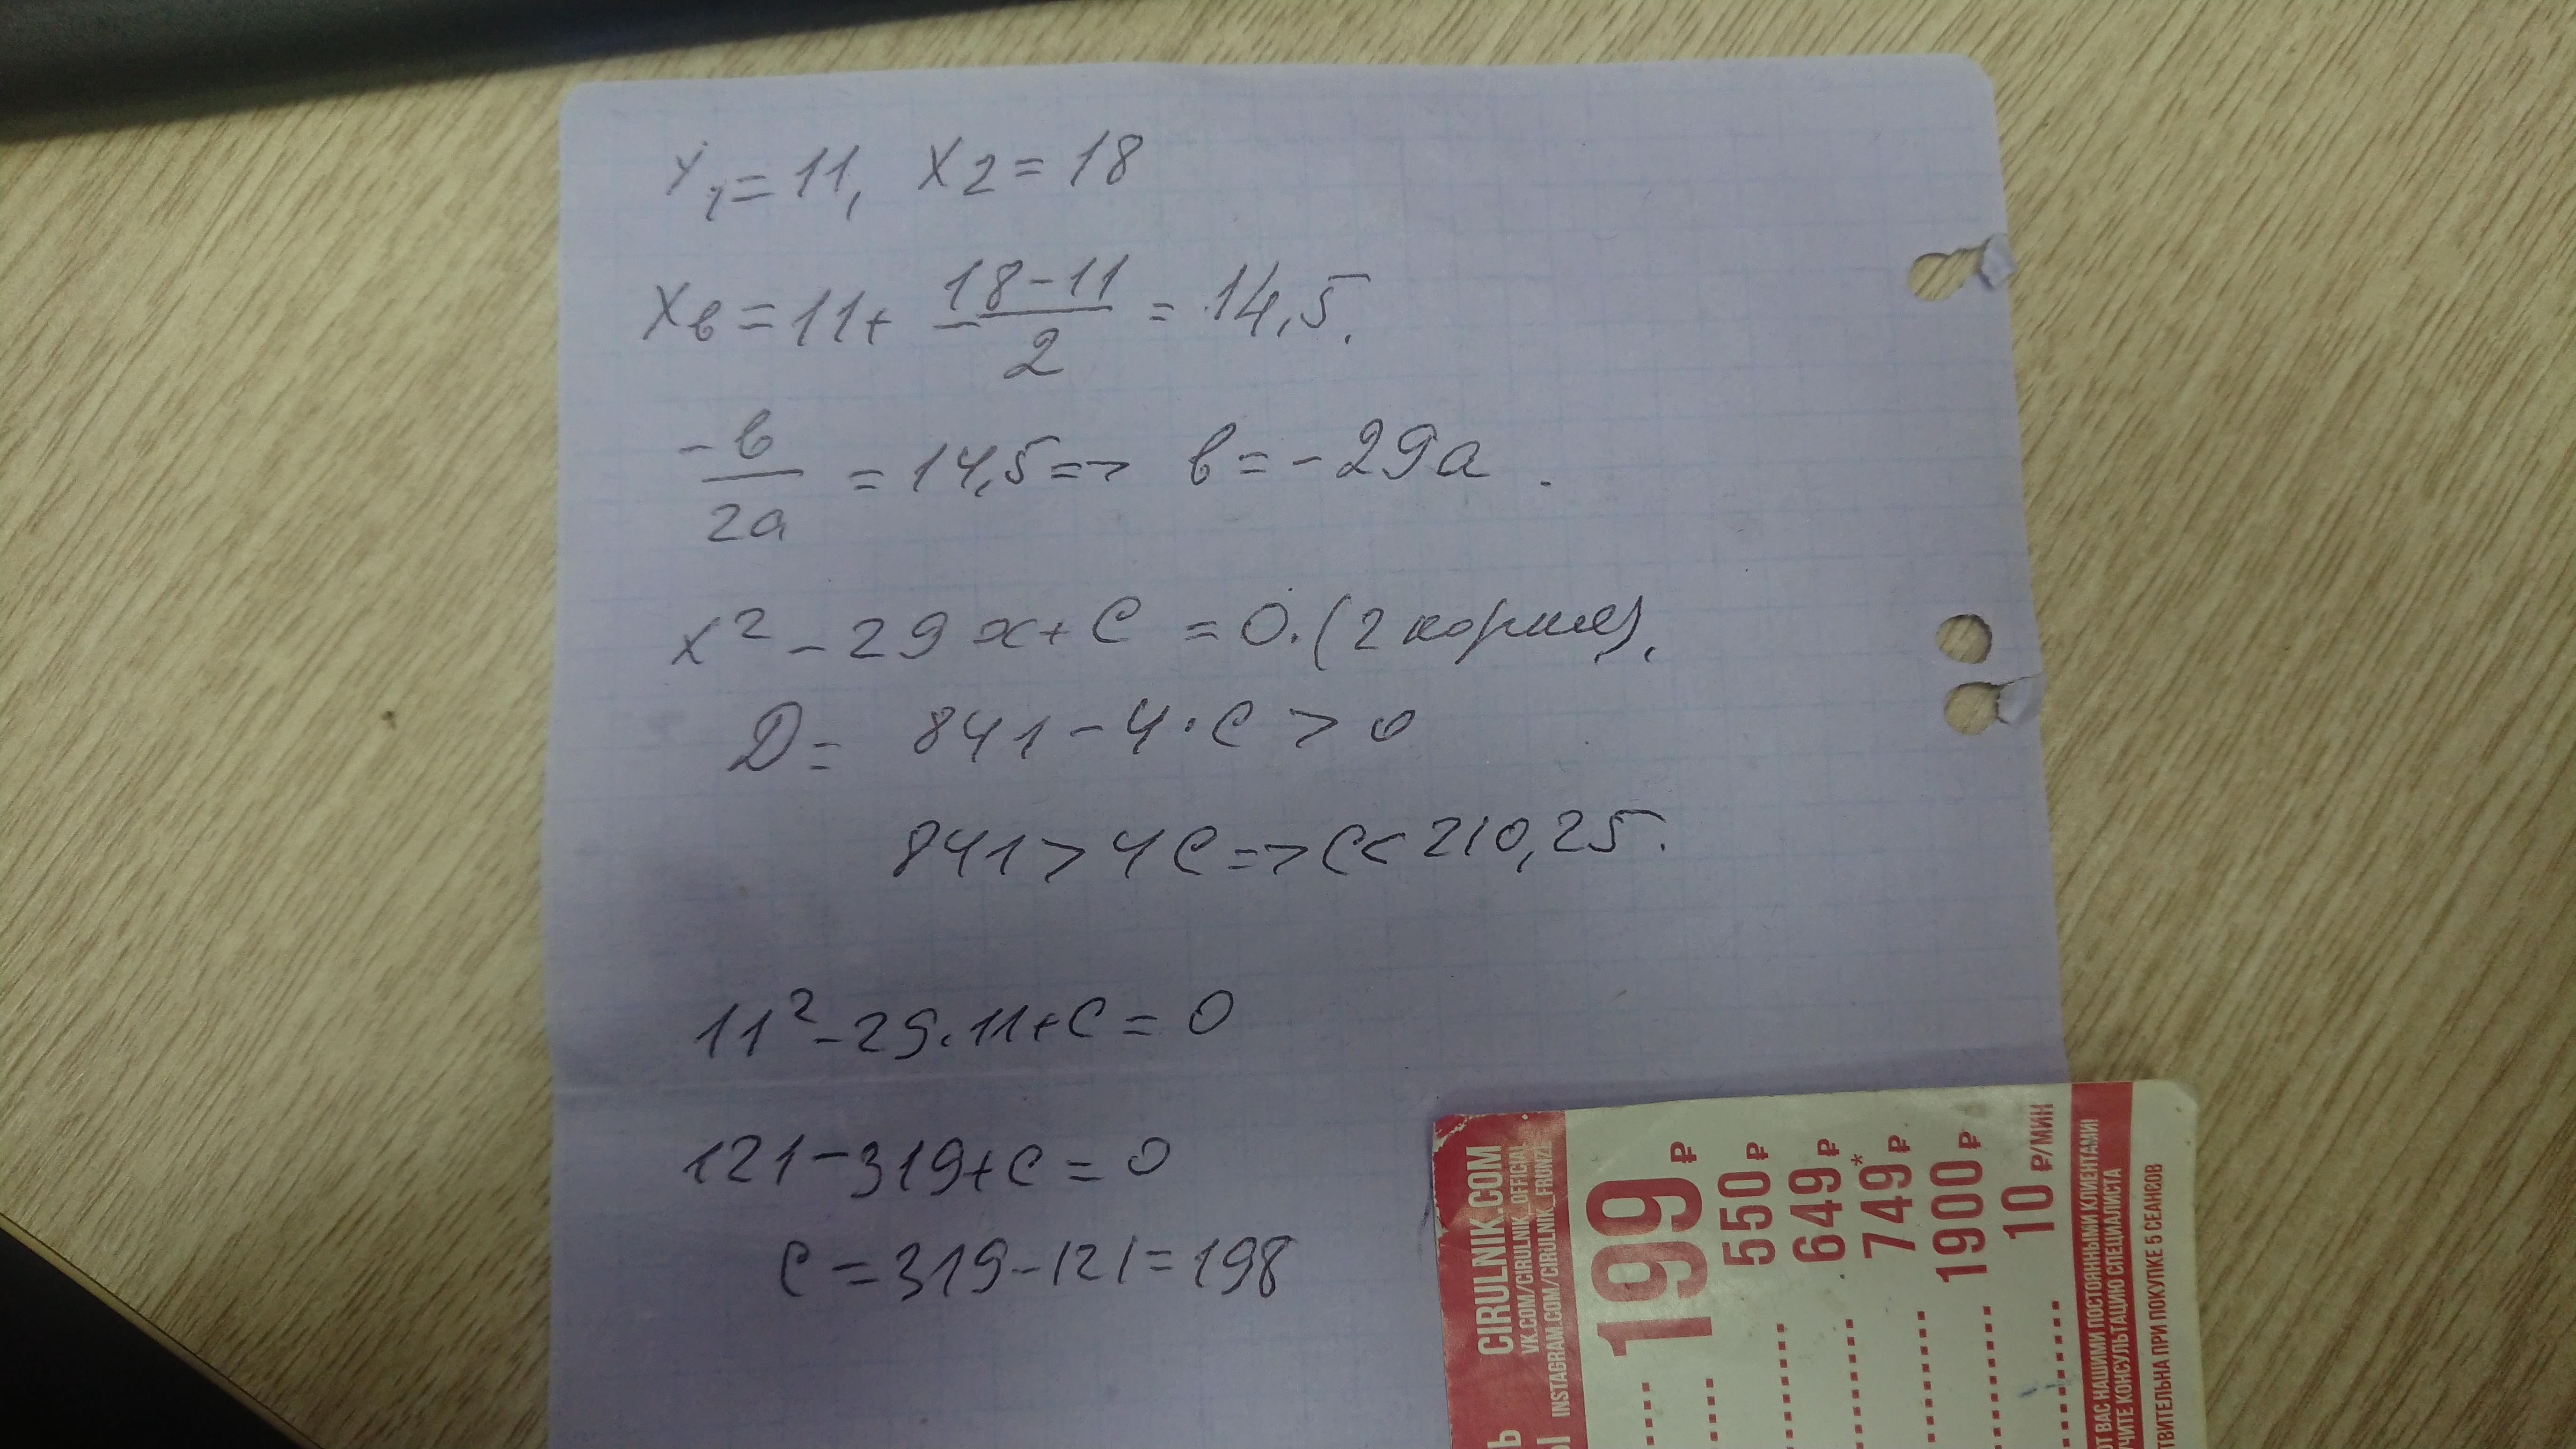 X₁=11, X2=18
Xв=11+ 18-11/2 = 14,5.
-в/2a = 14,5=> в=-29a.
x²-29x+c=0.(2 корня).
D= 841-4·c>0
841>4c=>c<210,25.
11²-29·11+c=0
121-319+c=0
c=319-121=198
CIRULNIK.COM
VK.COM/CIRULNIK_OFFICIAL
INSTAGRAM.COM/CIRULNIK_FRUNZE
199 ₽
550 ₽
649 ₽
749 ₽*
1900 ₽
10 ₽/МИН
ВАС НАШИМИ ПОСТОЯННЫМИ КЛИЕНТАМИ!
КОНСУЛЬТАЦИЮ СПЕЦИАЛИСТА
ПРИ ПОКУПКЕ 5 СЕАНСОВ